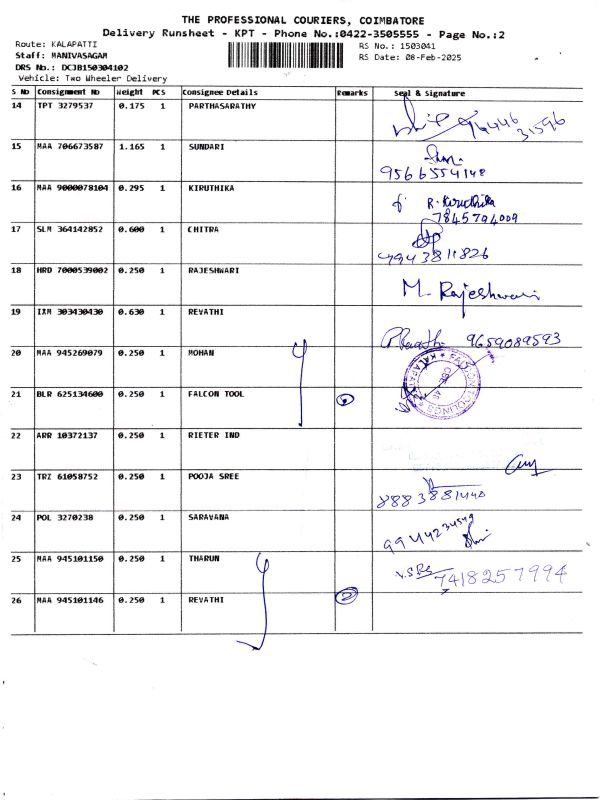 THE PROFESSIONAL COURIERS, COIMBATORE
Delivery Runsheet - KPT - Phone No.:0422-3505555 - Page No.:2
Route: KALAPATTI
RS No.: 1503041
Staff: MANIVASAGAM
RS Date: 08-Feb-2025
DRS No.: DCJB150304102
Vehicle: Two Wheeler Delivery
S No Consignment No Weight PCS Consignee Details Remarks Seal & Signature
14 TPT 3279537 0.175 1 PARTHASARATHY
96446 31596
15 MAA 706673587 1.165 1 SUNDARI
9566554148
16 MAA 9000078104 0.295 1 KIRUTHIKA R. Kiruthika
7845794009
17 SLM 364142852 0.600 1 CHITRA
9943811826
18 HRD 7000539002 0.250 1 RAJESHWARI M. Rajeshwari
19 IXM 303430430 0.630 1 REVATHI 9659089593
20 MAA 945269079 0.250 1 MOHAN
21 BLR 625134600 0.250 1 FALCON TOOL
22 ARR 10372137 0.250 1 RIETER IND
23 TRZ 61058752 0.250 1 POOJA SREE
8883881440
24 POL 3270238 0.250 1 SARAVANA
9944234549
25 MAA 945101150 0.250 1 THARUN
7418257994
26 MAA 945101146 0.250 1 REVATHI 2